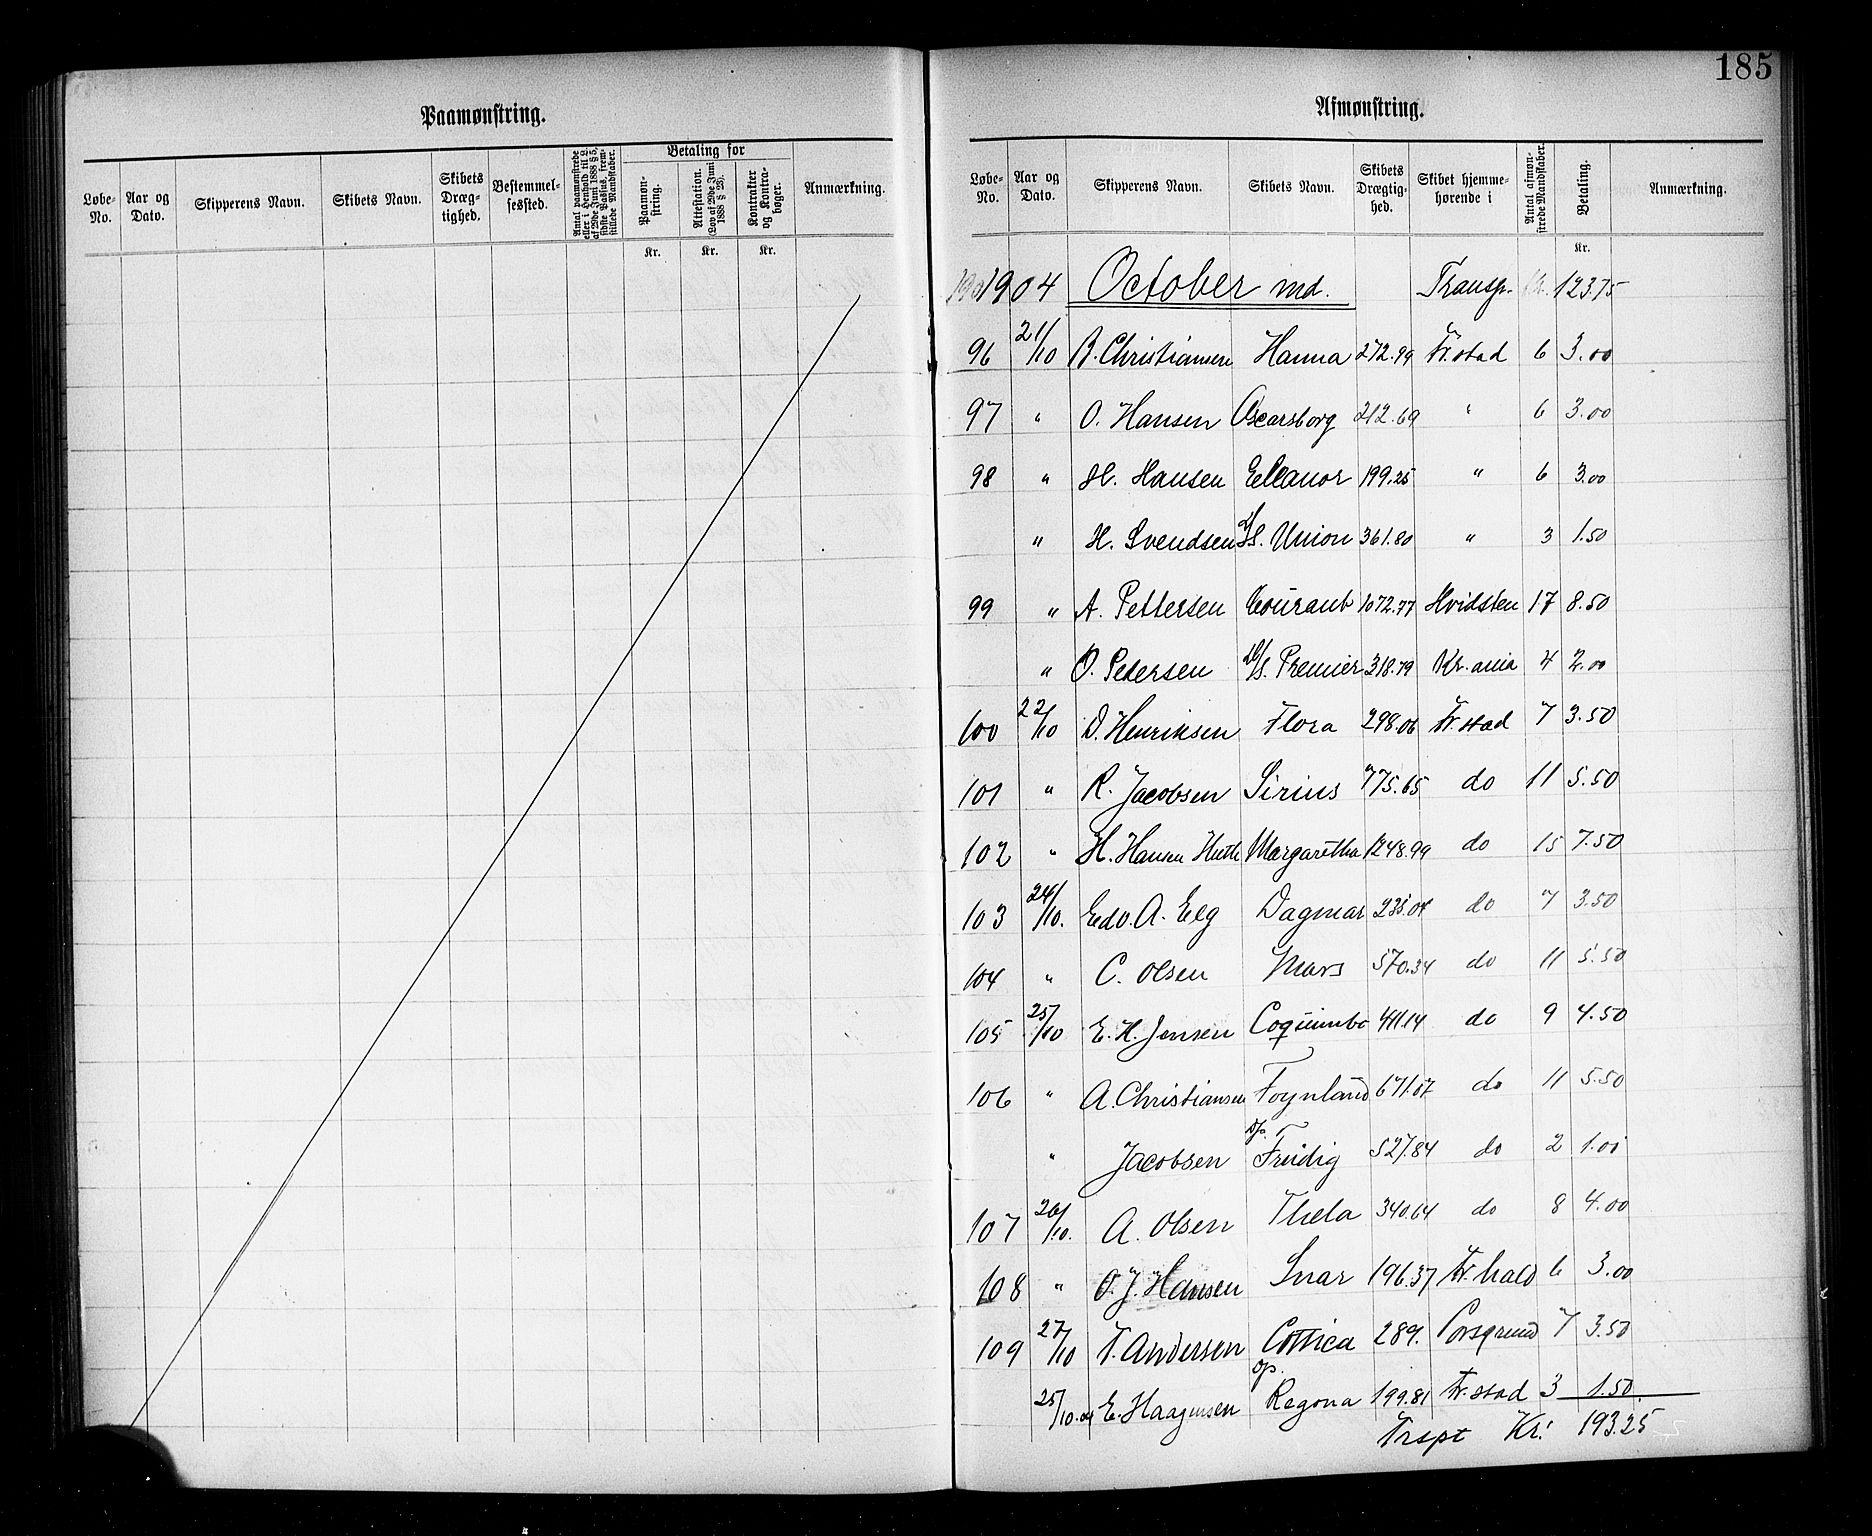 185
Paamønstring.
Løbe-No. | Aar og Dato. | Skipperens Navn. | Skibets Navn. | Skibets Dræg-tighed. | Bestemmel-sessted. | Antal paamønstrede eller i Henhold til L. af 29de Juni 1888 § 5, sidste Passus, frem-stillede Mandskaber. | Betaling for | Paamøn-string. | Attestation. (Lov af 29de Juni 1888 § 23). | Kontrakter og Kontra-bøger. | Anmærkning.
Kr. | Kr. | Kr.
Afmønstring.
Løbe-No. | Aar og Dato. | Skipperens Navn. | Skibets Navn. | Skibets Drægtig-hed. | Skibet hjemme-hørende i | Antal afmøn-strede Mandskaber. | Betaling. | Anmærkning.
Kr.
1904 October md. Transp. Kr. 123.75
96 21/10 B. Christiansen Hanna 272.99 Fr.stad 6 3.00
97 " O. Hansen Oscarsborg 212.69 " 6 3.00
98 " H. Hansen Eleanor 199.25 " 6 3.00
" H. Svendsen D/S. Union 361.80 " 3 1.50
99 " A. Pettersen Courant 1072.77 Hvidsten 17 8.50
" O. Pedersen D/S. Premier 318.79 Kr.ania 4 2.00
100 22/10 D. Henriksen Flora 298.06 Fr.stad 7 3.50
101 " R. Jacobsen Sirius 775.65 do 11 5.50
102 " H. Hansen Huth Margaretha 1248.99 do 15 7.50
103 24/10. Edv. A. Elg Dagmar 235.04 do 7 3.50
104 " C. Olsen Mars 570.34 do 11 5.50
105 25/10 E. H. Jensen Coquimbo 411.14 do 9 4.50
106 " A. Christiansen Foynland 671.07 do 11 5.50
" Jacobsen D/s. Freidig 527.84 do 2 1.00
107 26/10. A. Olsen Thela 340.64 do 8 4.00
108 " O. J. Hansen Snar 196.37 Fr.hald 6 3.00
109 27/10 T. Andersen Cottica 289. Porsgrund 7 3.50
25/10.04 E. Haagensen D/s. Regona 199.81 Fr.stad 3 1.50
Trspt Kr. 193.25